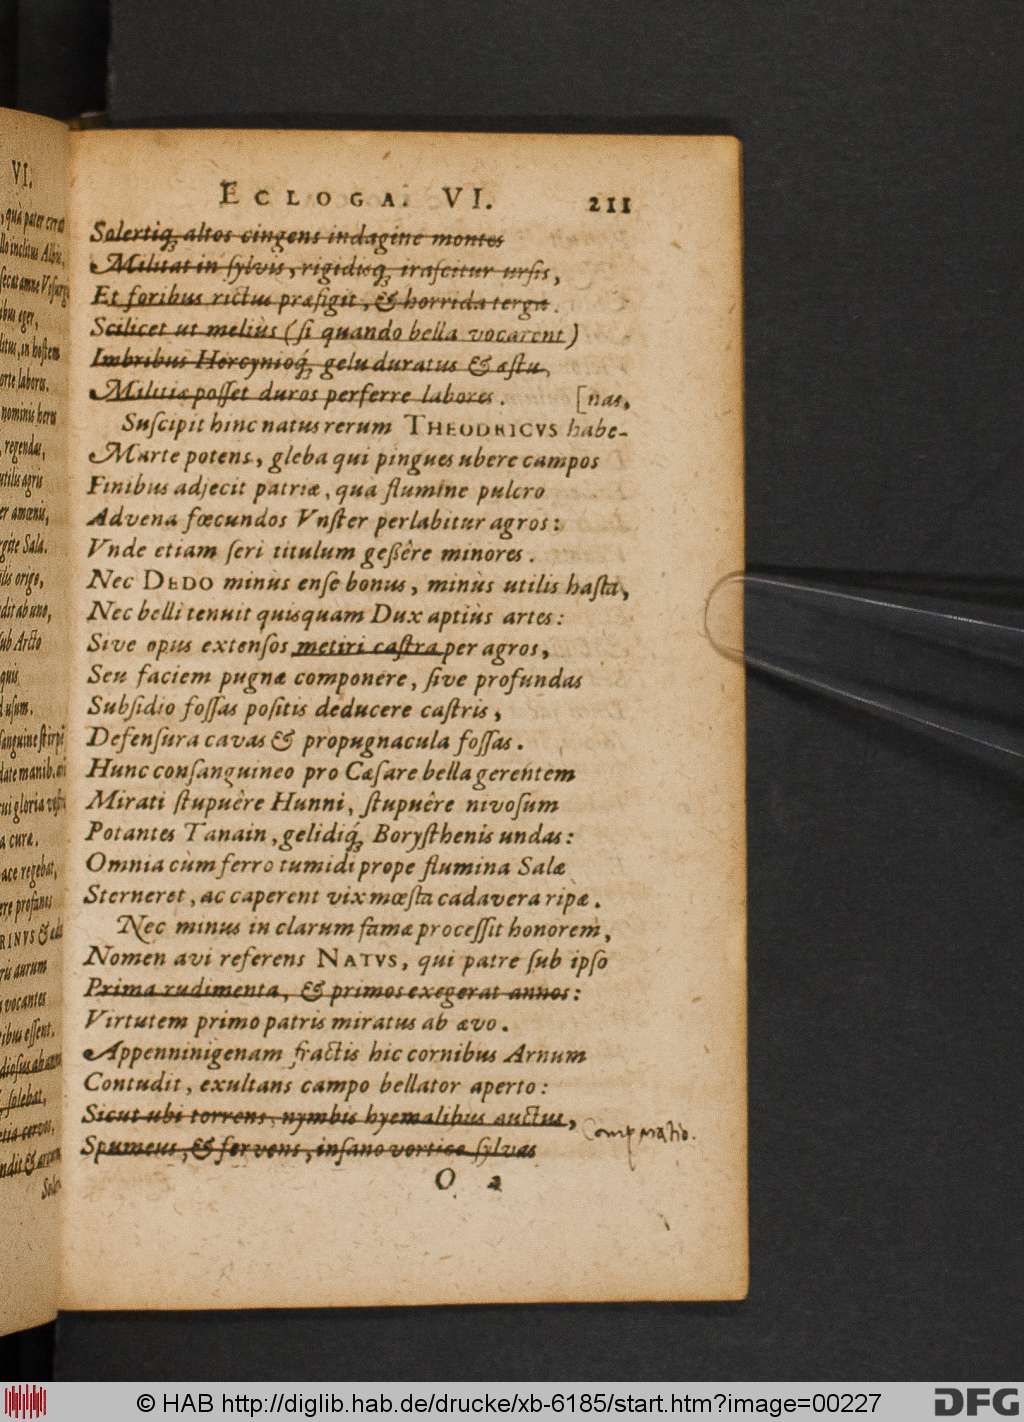 VI.
ECLOGA. VI. 211
Solertiq́; altos cingens indagine montes
Militat in ſylvis, rigidisq́; iraſcitur urſis,
Et foribus rictus præfigit, & horrida terga.
Scilicet ut meliùs (ſi quando bella vocarent)
Imbribus Hercynioq́; gelu duratus & æſtu,
Militiæ poſſet duros perferre labores. [nas,
Suſcipit hinc natus rerum THEODRICVS habe-
Marte potens, gleba qui pingues ubere campos
Finibus adjecit patriæ, qua flumine pulcro
Advena fœcundos Vnſter perlabitur agros:
Vnde etiam ſeri titulum geßêre minores.
Nec DEDO minùs enſe bonus, minùs utilis haſta,
Nec belli tenuit quisquam Dux aptiùs artes:
Sive opus extenſos metiri caſtra per agros,
Seu faciem pugnæ componere, ſive profundas
Subſidio foſſas poſitis deducere caſtris,
Defenſura cavas & propugnacula foſſas.
Hunc conſanguineo pro Cæſare bella gerentem
Mirati ſtupuêre Hunni, ſtupuêre nivoſum
Potantes Tanain, gelidiq́; Boryſthenis undas:
Omnia cùm ferro tumidi prope flumina Salæ
Sterneret, ac caperent vix mœſta cadavera ripæ.
Nec minus in clarum famæ proceſſit honorem,
Nomen avi referens NATVS, qui patre ſub ipſo
Prima rudimenta, & primos exegerat annos:
Virtutem primo patris miratus ab ævo.
Appenninigenam fractis hic cornibus Arnum
Contudit, exultans campo bellator aperto:
Sicut ubi torrens, nymbis hyemalibus auctus,
Comparatio.
Spumeus, & fervens, inſano vortice ſylvas
O 2
© HAB http://diglib.hab.de/drucke/xb-6185/start.htm?image=00227
DFG